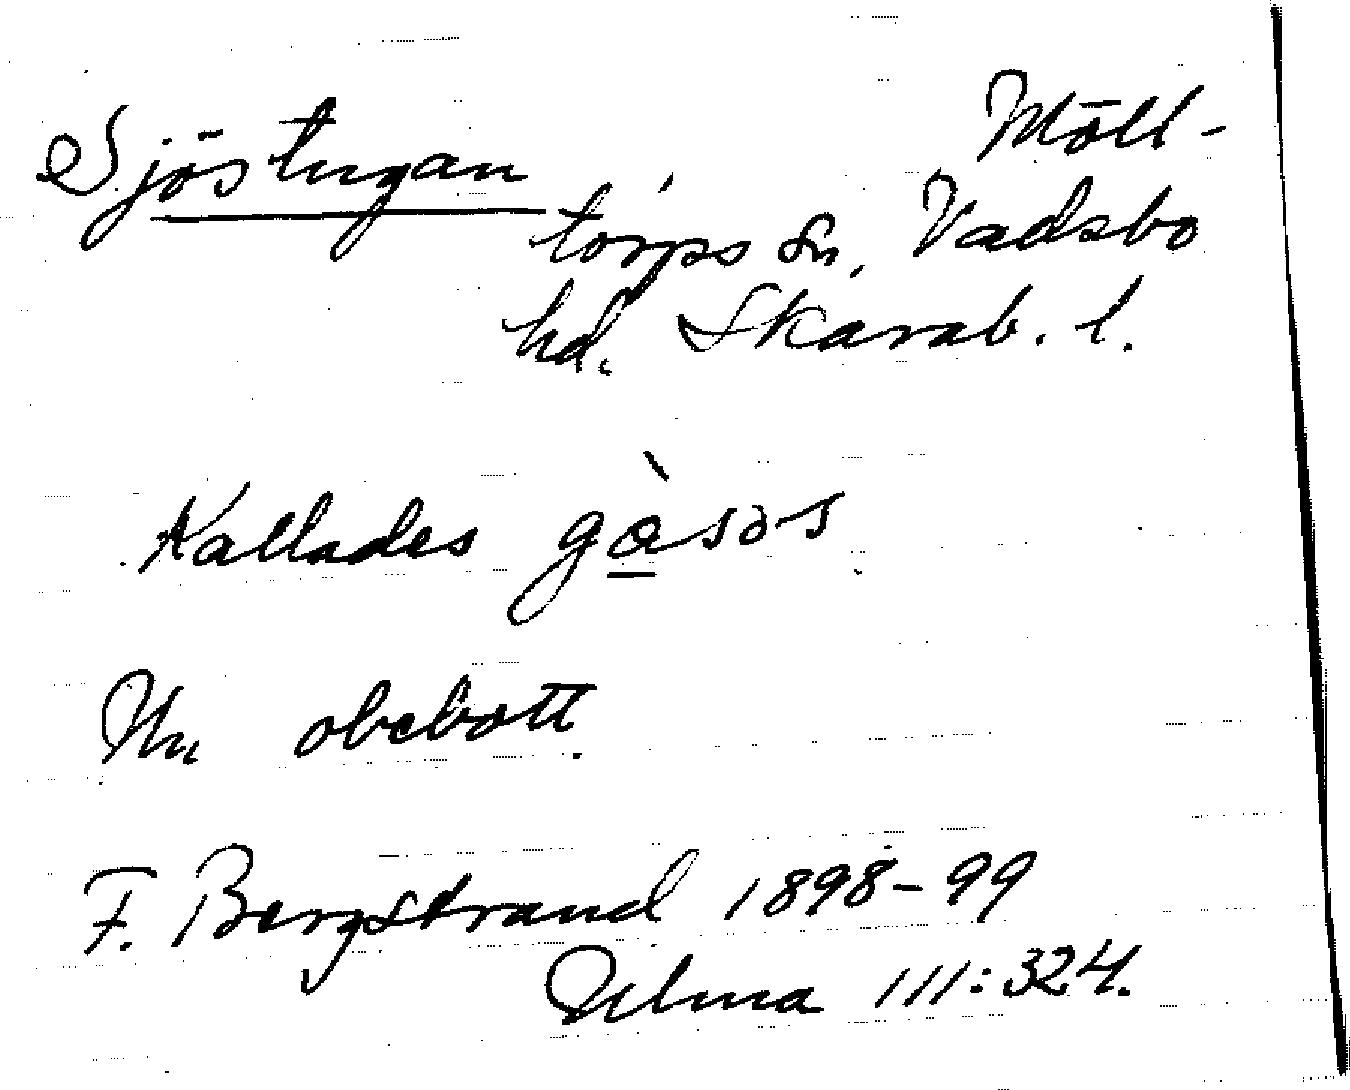 Sjöstugan
Möll-
torps sn, Vadsbo
hd. Skarab. l.
Kallades gàsɔs
Nu obebott.
F. Bergstrand 1898-99
Ulma 111:324.